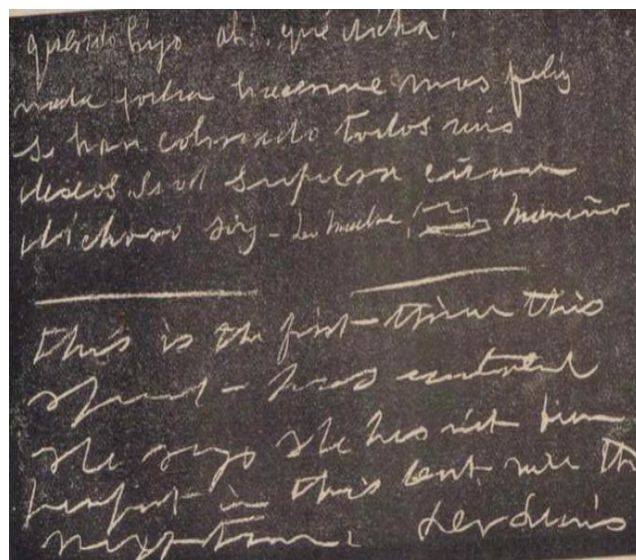 querido hijo ah! qué dicha!
nada podra hacerme mas feliz
se han colmado todos mis
deseos si vd supiera cuan
dichoso soy -
this is the first time this
spirit - has
she says she has not been
perfect in this but will the
next time.